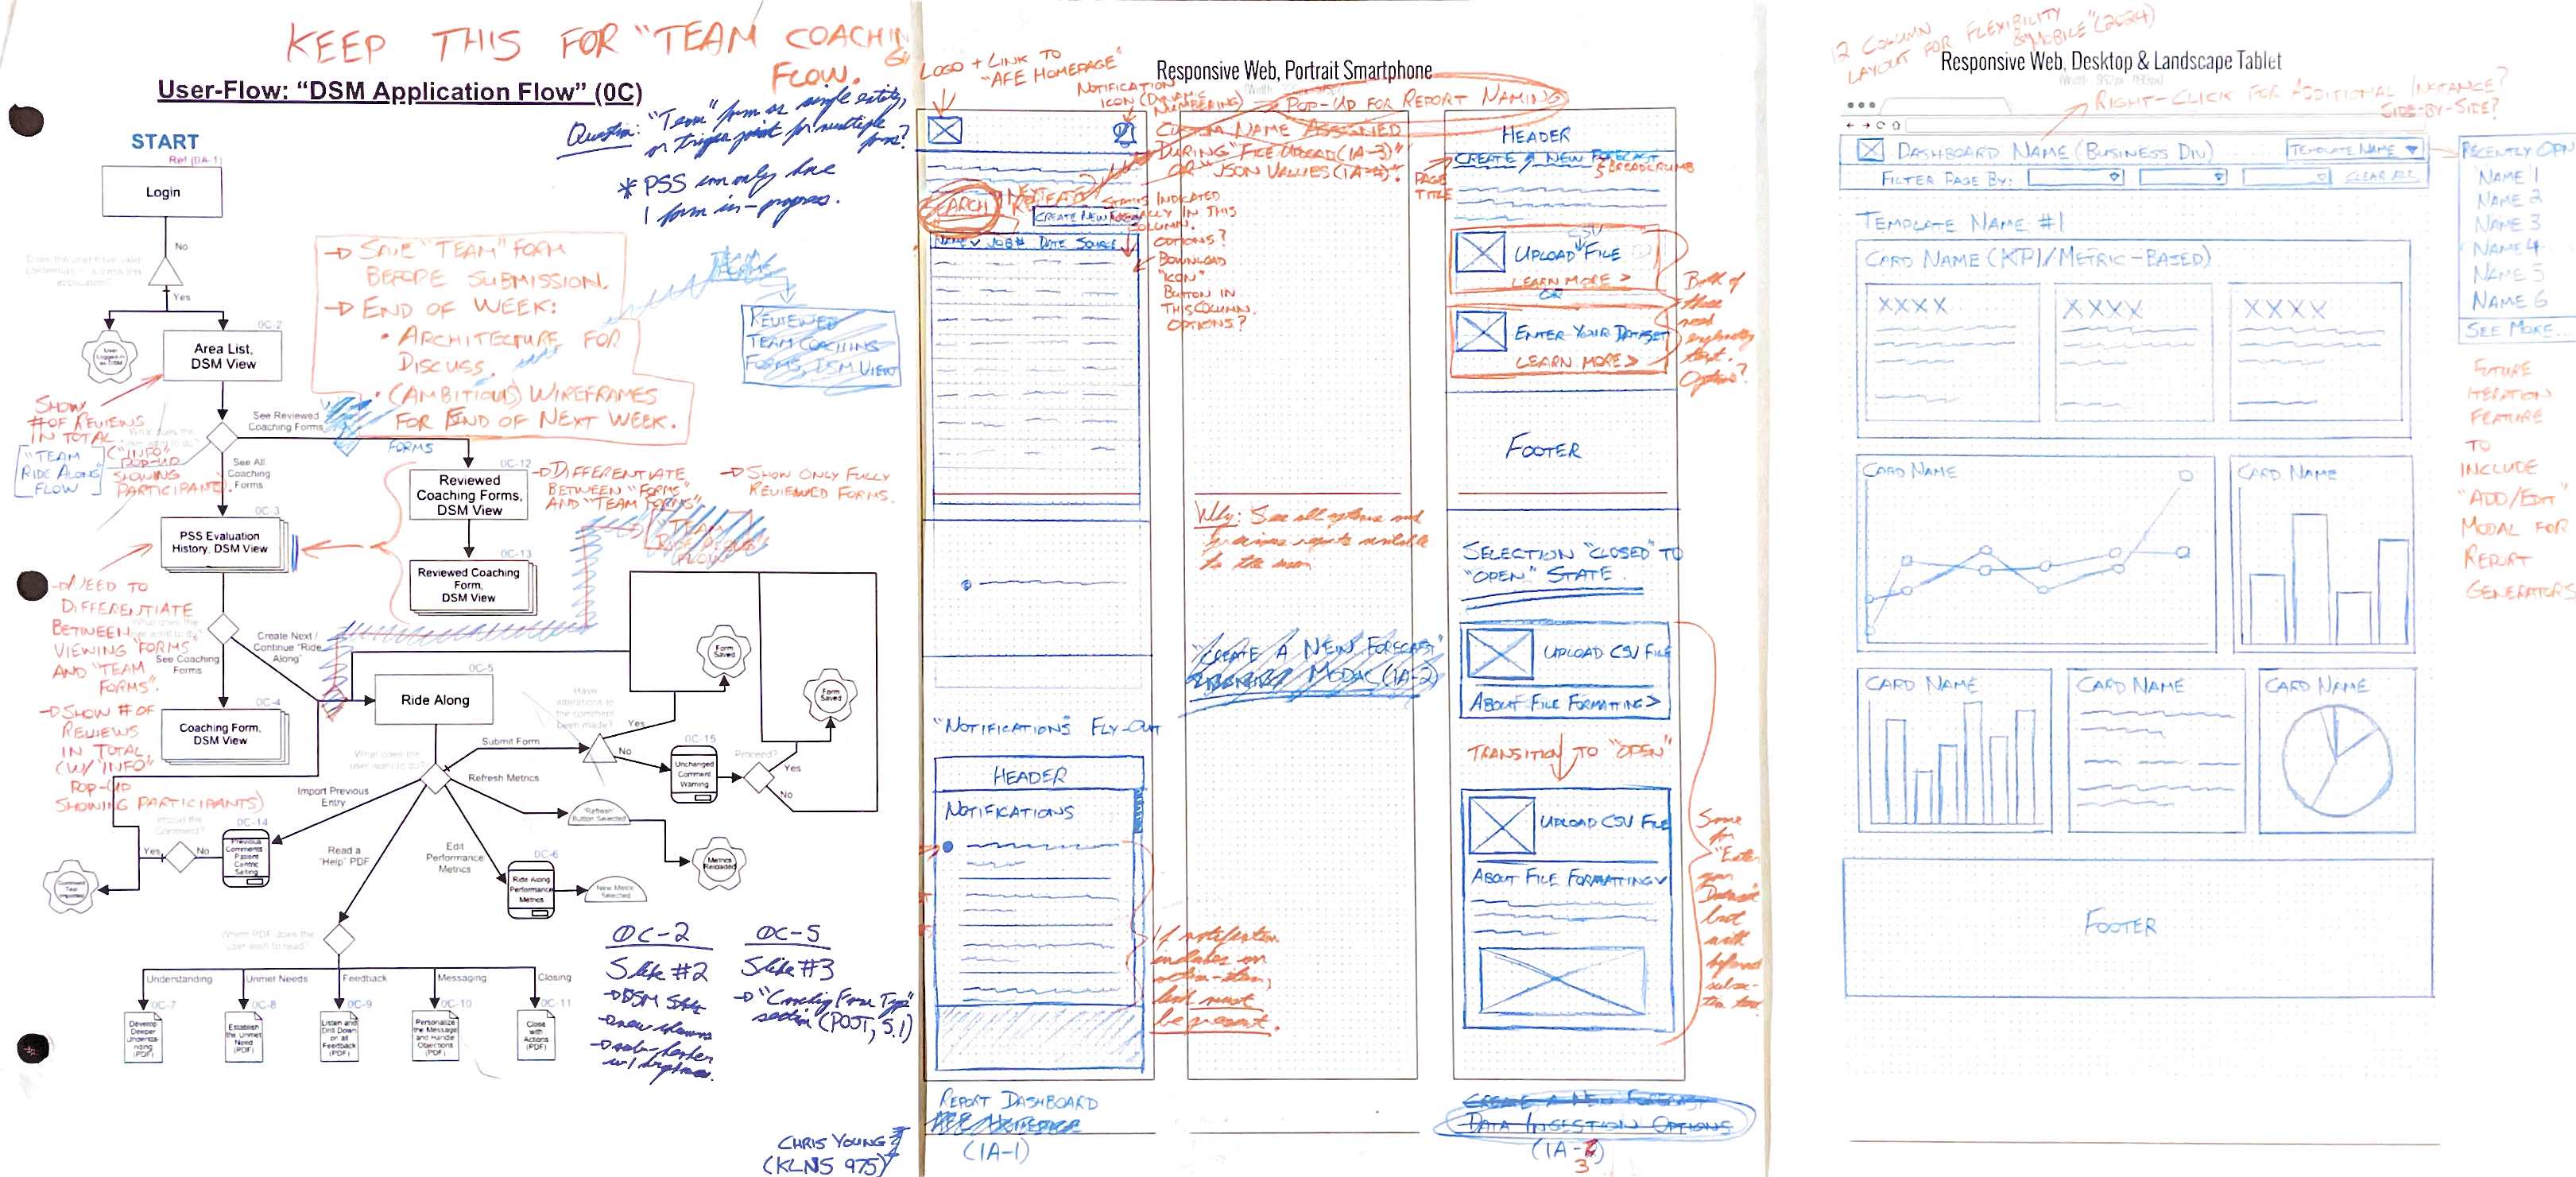 KEEP THIS FOR "TEAM COACHING
FLOW.
User-Flow: "DSM Application Flow" (0C)
Question: "Team" form as single entity,
or trigger point for multiple
forms?
* PSS can only have
1 form in-progress.
START
Ref (0A-1)
Login
No
Yes
0C-2
Area List,
DSM View
→ SAVE "TEAM" FORM
BEFORE SUBMISSION.
→ END OF WEEK:
• ARCHITECTURE FOR
DISCUSS.
• (AMBITIOUS) WIREFRAMES
FOR END OF NEXT WEEK.
REVIEWED
TEAM COACHING
FORMS, DSM VIEW
SHOW
# OF REVIEWS
IN TOTAL.
("INFO"
POP-UP
SHOWING
PARTICIPANTS).
"TEAM
RIDE ALONG"
FLOW
See Reviewed
Coaching Forms
FORMS
See All
Coaching
Forms
0C-12
Reviewed
Coaching Forms,
DSM View
→ DIFFERENTIATE
BETWEEN "FORMS"
AND "TEAM FORMS".
→ SHOW ONLY FULLY
REVIEWED FORMS.
0C-3
PSS Evaluation
History, DSM View
0C-13
Reviewed Coaching
Form,
DSM View
→ NEED TO
DIFFERENTIATE
BETWEEN
VIEWING "FORMS
AND "TEAM
FORMS".
→ SHOW # OF
REVIEWS
IN TOTAL,
(W/ "INFO"
POP-UP
SHOWING PARTICIPANTS)
Create Next /
Continue "Ride
Along"
See Coaching
Forms
0C-4
Coaching Form,
DSM View
0C-5
Ride Along
What does the
user want to do?
Submit Form
Refresh Metrics
Have
alterations to
the comment
been made?
Yes
No
Form
Saved
Form
Saved
0C-15
Unchanged
Comment
Warning
Proceed?
Yes
No
Import Previous
Entry
Import the
Comment?
Yes
No
0C-14
Previous
Comments
Patient
Centric
Selling
Comment
Text
Imported
Read a
"Help" PDF
Edit
Performance
Metrics
"Refresh"
Button Selected
Metrics
Reloaded
0C-6
Ride Along
Performance
Metrics
New Metric
Selected
Which PDF does the
user wish to read?
Understanding
Unmet Needs
Feedback
Messaging
Closing
0C-7
0C-8
0C-9
0C-10
0C-11
Develop
Deeper
Understanding
(PDF)
Establish
the Unmet
Need
(PDF)
Listen and
Drill Down
on all
Feedback
(PDF)
Personalize
the Message
and Handle
Objections
(PDF)
Close
with
Actions
(PDF)
0C-2
Slide #2
0C-5
Slide #3
→ "Coaching Form Type"
section (POST, 5.1)
CHRIS YOUNG
(KLNS 975)
LOGO + LINK TO
"AFE HOMEPAGE"
Responsive Web, Portrait Smartphone
NOTIFICATION
ICON (DYNAMIC
NUMBERING)
POP-UP FOR REPORT NAMING
CUSTOM NAME ASSIGNED
DURING "FILE UPLOAD (1A-3)"
OR "JSON VALUES (1A-4)".
SEARCH
CREATE NEW
NAME JOB# DATE SOURCE
STATUS INDICATED
IN THIS
COLUMN.
OPTIONS?
DOWNLOAD
"ICON"
BUTTON IN
THIS COLUMN.
OPTIONS?
Why: See all options and
previous reports available
to the user.
"CREATE A NEW FORECAST"
MODAL (1A-2)
"NOTIFICATIONS" FLY-OUT
HEADER
NOTIFICATIONS
If notification
includes an
action-item,
link must
be present.
REPORT DASHBOARD
(1A-1)
HEADER
PAGE
TITLE
CREATE A NEW FORECAST
& BREADCRUMB
CSV
UPLOAD FILE
LEARN MORE >
OR
ENTER YOUR DATASET
LEARN MORE >
Both of
these
need
explanatory
text.
Options?
FOOTER
SELECTION "CLOSED" TO
"OPEN" STATE.
UPLOAD CSV FILE
ABOUT FILE FORMATTING >
TRANSITION TO "OPEN"
UPLOAD CSV FILE
ABOUT FILE FORMATTING
Same
for
"Enter
your
Dataset"
but
with
CREATE A NEW FORECAST
DATA INGESTION OPTIONS
(1A-3)
12 COLUMN
LAYOUT FOR FLEXIBILITY
& "MOBILE" (2024)
Responsive Web, Desktop & Landscape Tablet
RIGHT-CLICK FOR ADDITIONAL INSTANCE?
SIDE-BY-SIDE?
DASHBOARD NAME (BUSINESS DIV)
TEMPLATE NAME
FILTER PAGE BY:
CLEAR ALL
RECENTLY OPN
NAME 1
NAME 2
NAME 3
NAME 4
NAME 5
NAME 6
SEE MORE...
TEMPLATE NAME #1
CARD NAME (KPI/METRIC-BASED)
XXXX
XXXX
XXXX
CARD NAME
CARD NAME
CARD NAME
CARD NAME
CARD NAME
FUTURE
ITERATION
FEATURE
TO
INCLUDE
"ADD/EDIT"
MODAL FOR
REPORT
GENERATORS
FOOTER